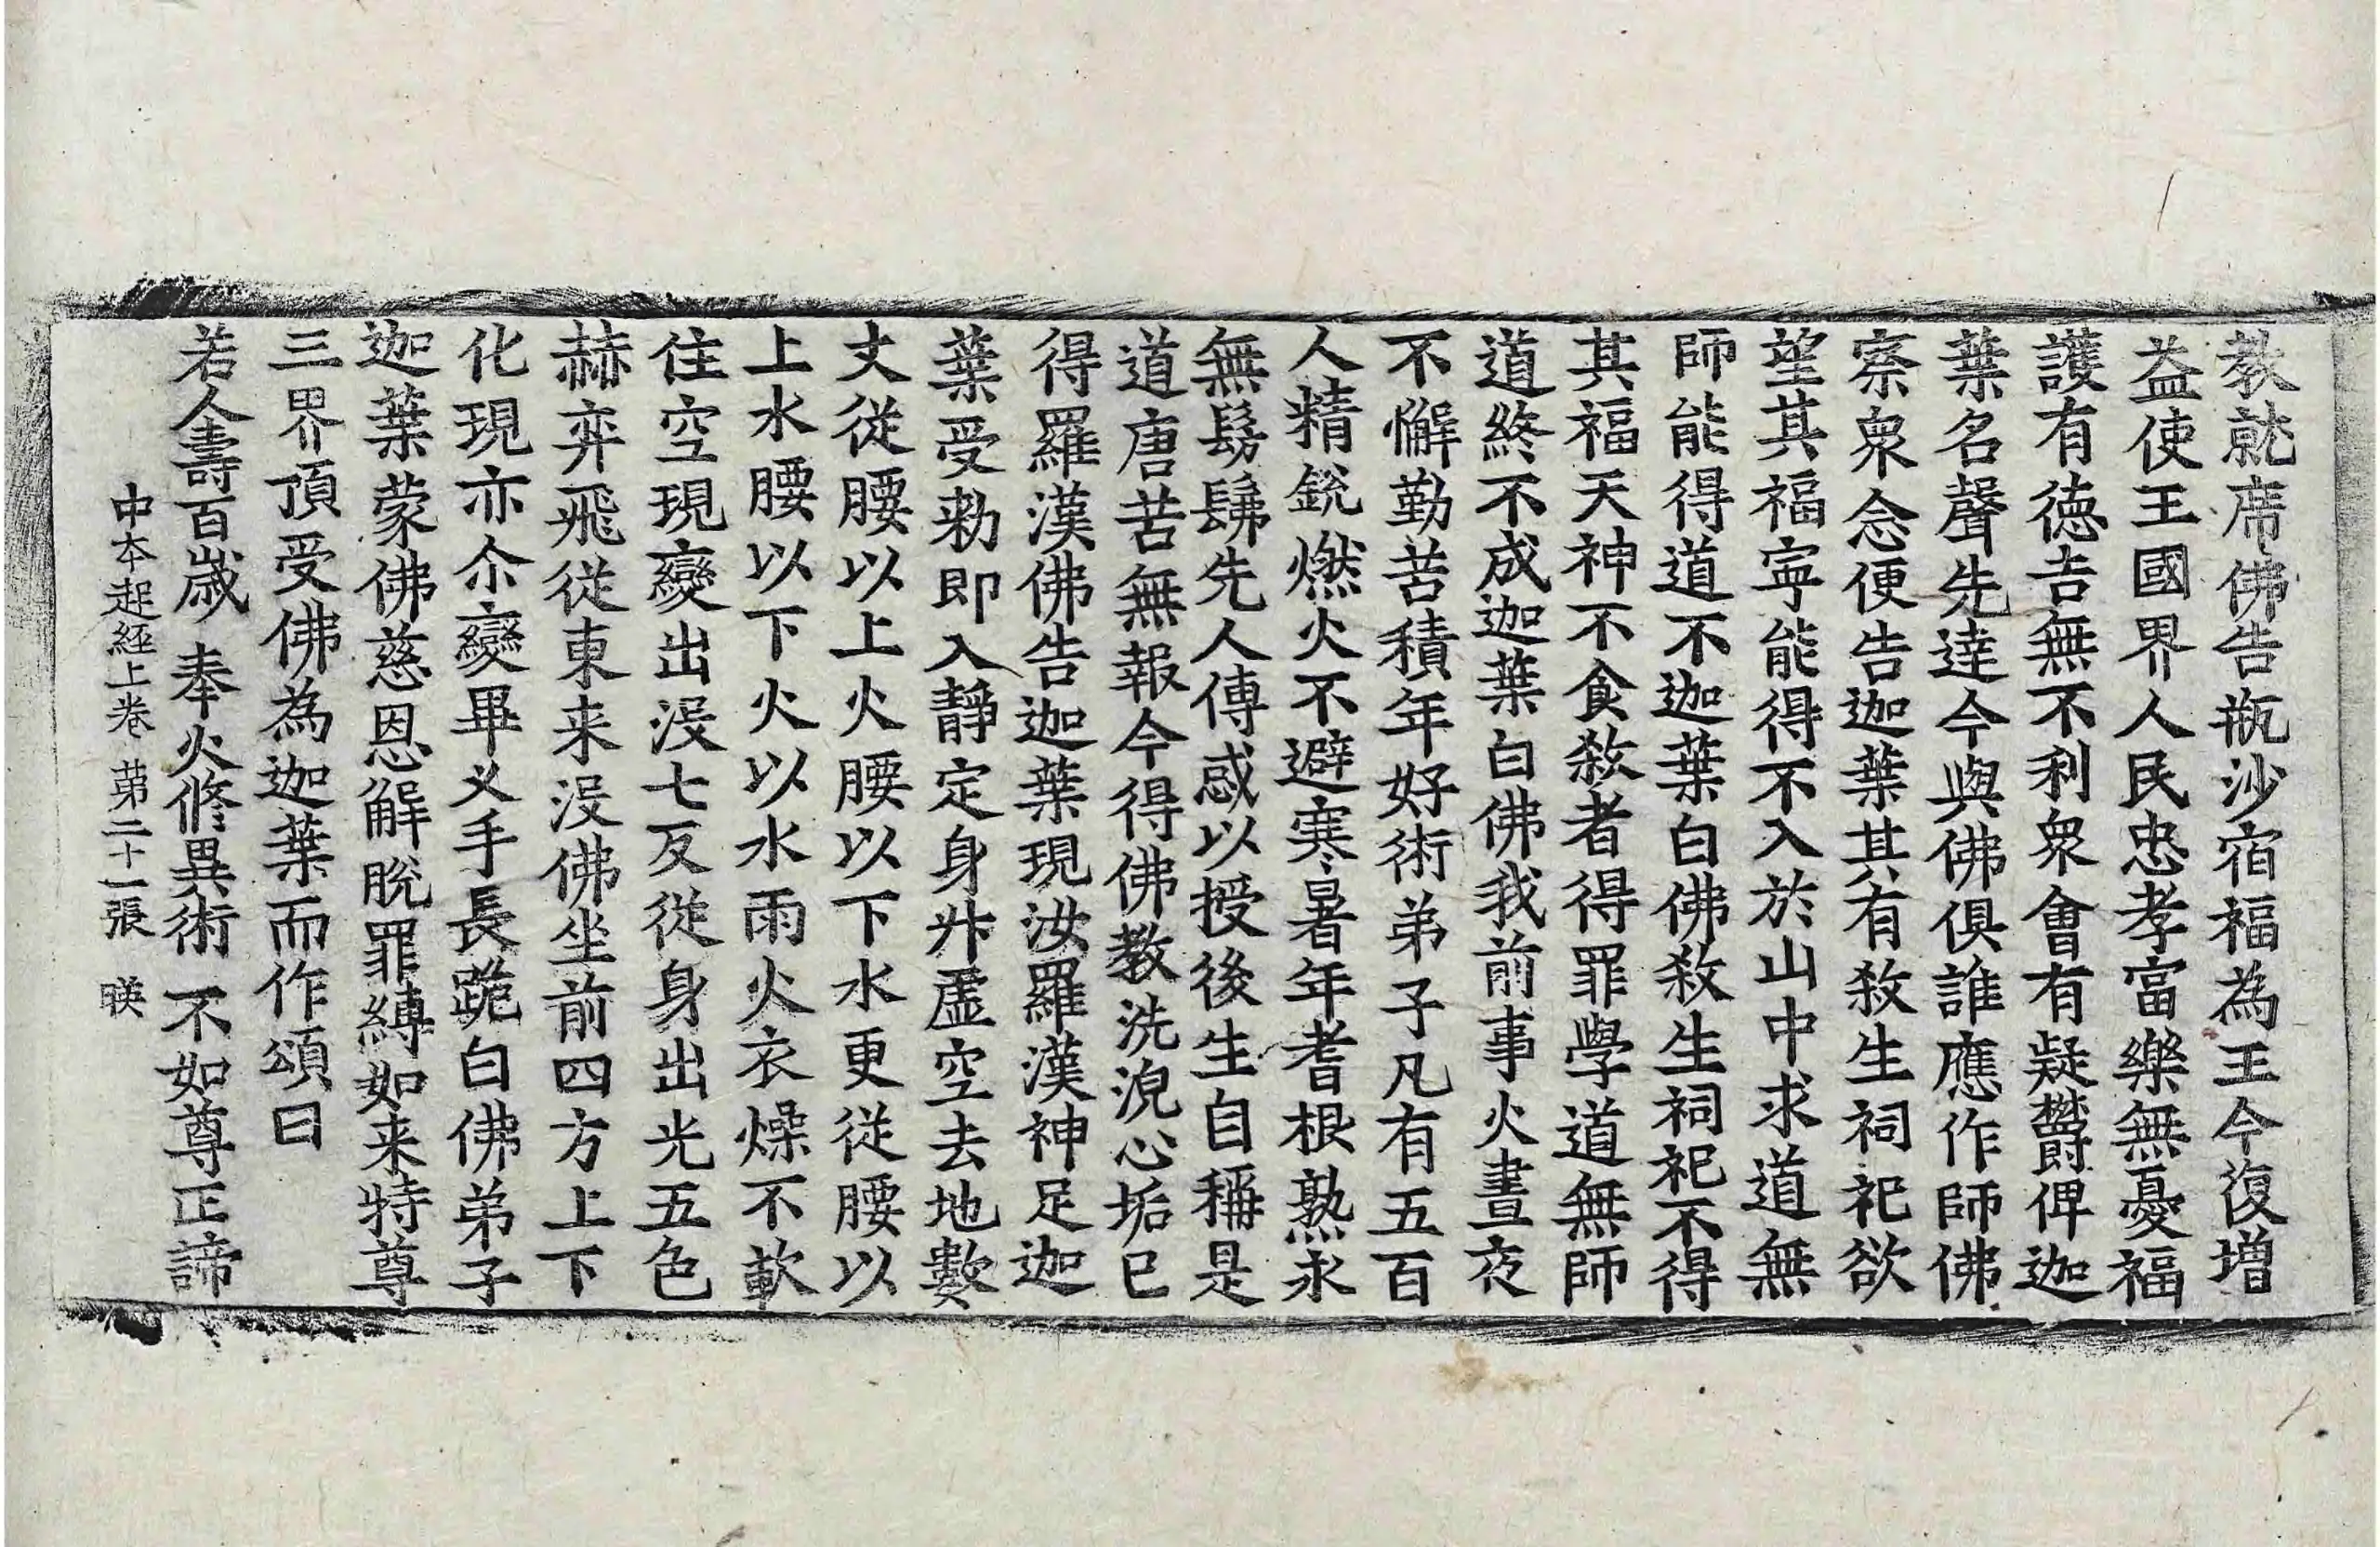 教就席佛告瓶沙宿福為王今復增
益使王國界人民忠孝富樂無憂福
護有德吉無不利衆會有疑欝俾迦
葉名聲先達今與佛俱誰應作師佛
察衆念便告迦葉其有敎生祠祀欲
望其福寧能得不入於山中求道無
師能得道不迦葉白佛敎生祠祀不得
其福天神不食敎者得罪學道無師
道終不成迦葉白佛我前事火晝夜
不懈勤苦積年好術弟子凡有五百
人精銳燃火不避寒暑年耆根熟永
無髣髴先人傳惑以授後生自稱是
道唐苦無報今得佛教洗浼心垢已
得羅漢佛告迦葉現汝羅漢神足迦
葉受勑即入靜定身炏虛空去地數
丈從腰以上火腰以下水更從腰以
上水腰以下火以水雨火衣燥不軟
住空現變出没七反從身出光五色
赫弈飛從東来没佛坐前四方上下
化現亦尒變畢叉手長跪白佛弟子
迦葉蒙佛慈恩解脫罪縛如来特尊
三界頂受佛為迦葉而作頌曰
若人壽百歲 奉火修異術 不如尊正諦
中本起經上卷 第二十一張 暎